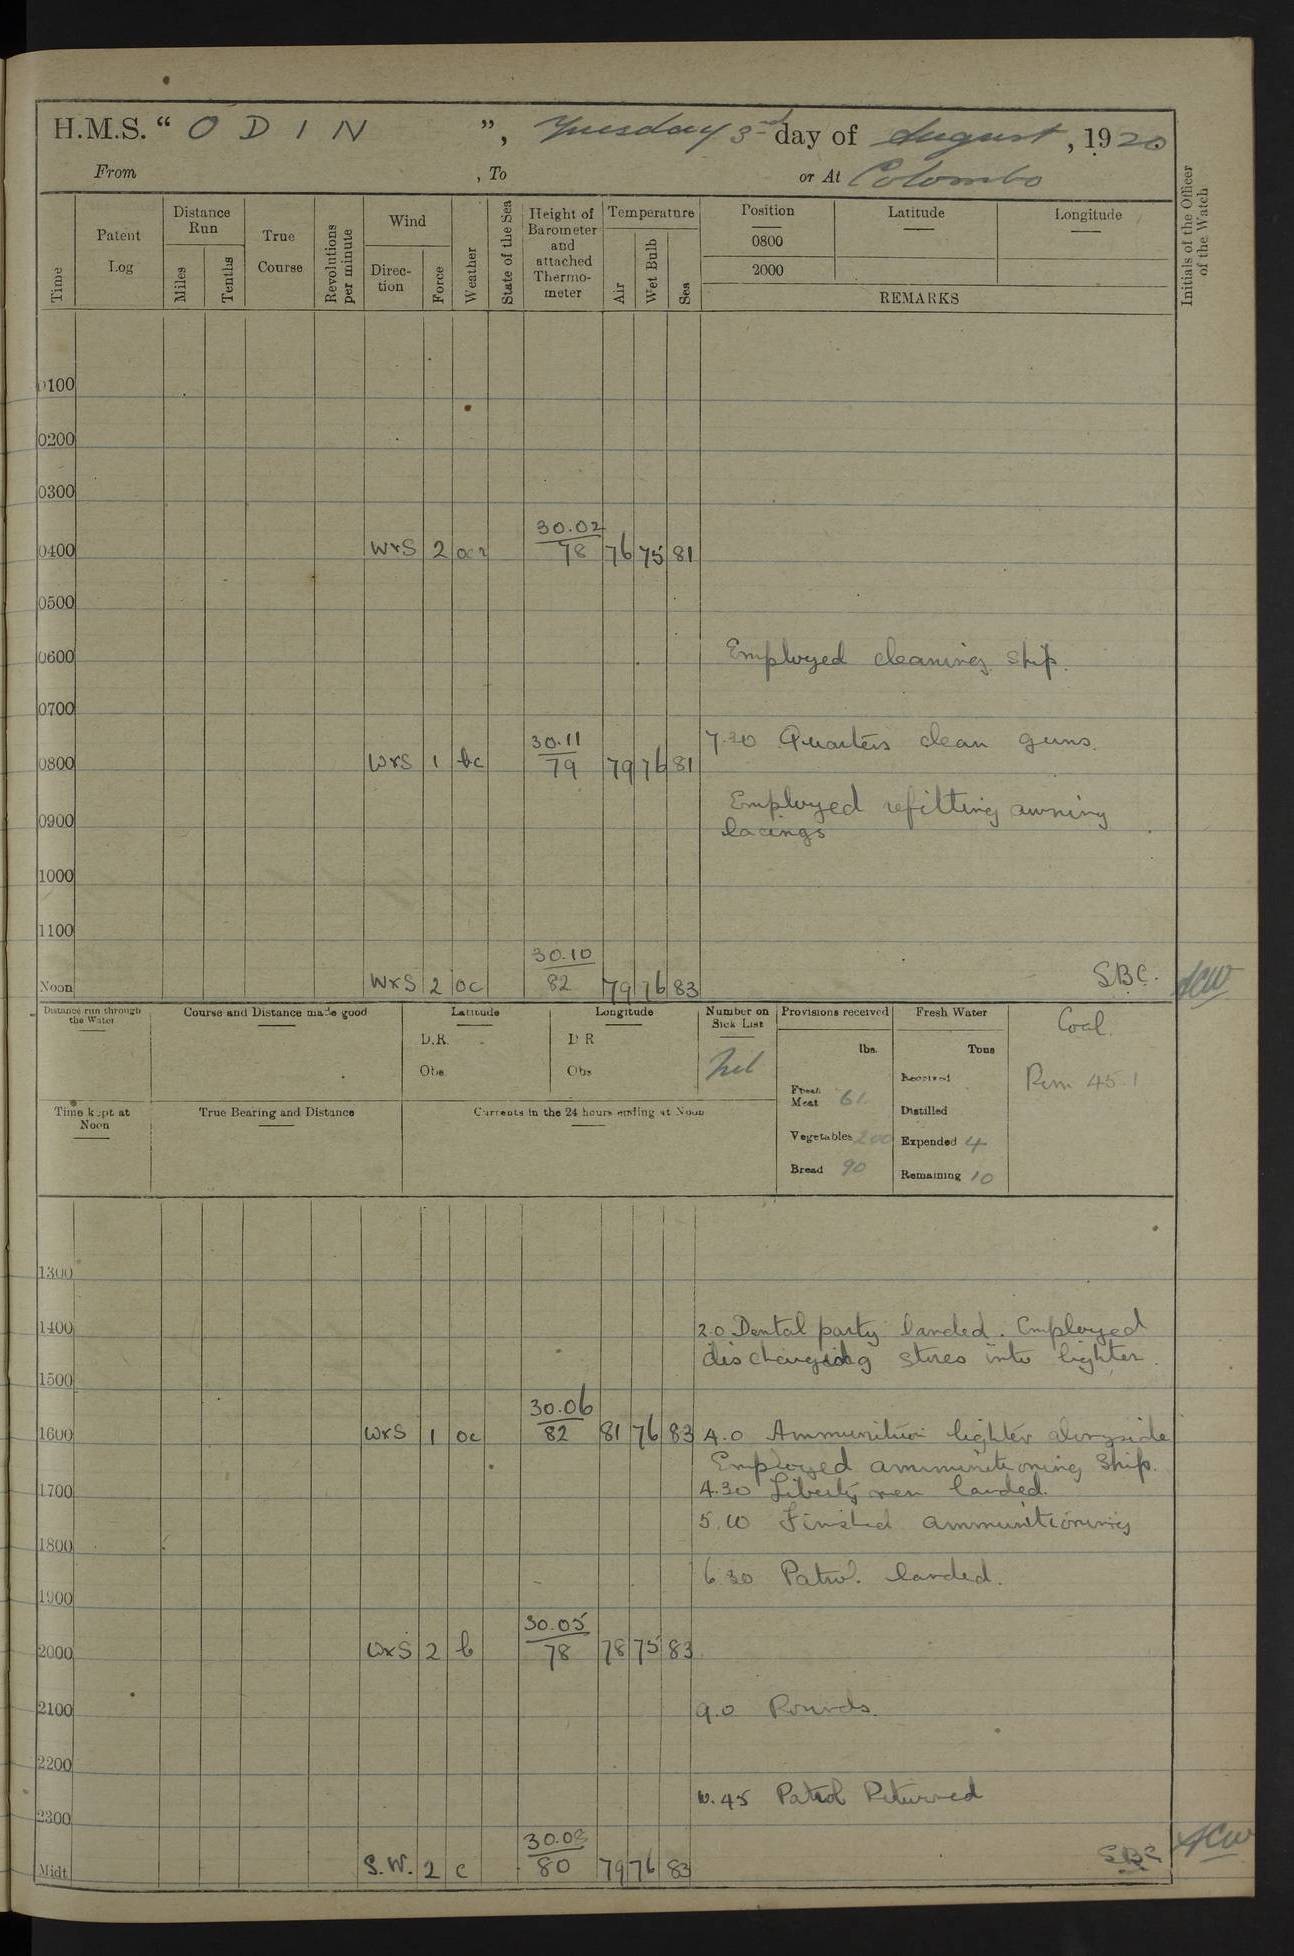 H.M.S. “ O D I N ”, Tuesday 3rd day of August, 1920
From , To or At Colombo
Time
Patent Log
Distance Run
Miles
Tenths
True Course
Revolutions per minute
Wind
Direction
Force
Weather
State of the Sea
Height of Barometer and attached Thermometer
Temperature
Air
Wet Bulb
Sea
Position
Latitude
Longitude
0800
2000
REMARKS
Initials of the Officer of the Watch
0100
0200
0300
30.02
0400 WxS 2 78 76 75 81
0500
0600 Employed cleaning ship.
0700
30.11 7.30 Quarters clean guns.
0800 WxS 1 bc 79 79 76 81
Employed refitting awning
0900 lacings
1000
1100
30.10
Noon WxS 2 oc 82 79 76 83 SBC. ACW
Distance run through the Water
Course and Distance made good
Latitude
D.R.
Obs
Longitude
D R
Obs
Number on Sick List
Nil
Provisions received
lbs.
Fresh Meat 61
Vegetables 200
Bread 90
Fresh Water
Tons
Received
Distilled
Expended 4
Remaining 10
Coal
Rem 45.1
Time kept at Noon
True Bearing and Distance
Currents in the 24 hours ending at Noon
1300
1400 2.0 Dental party landed. Employed
discharging stores into lighter.
1500
30.06
1600 WxS 1 oc 82 81 76 83 4.0 Ammunition lighter alongside
Employed ammunitioning ship.
1700 4.30 Liberty men landed.
5.10 Finished ammunitioning
1800
6.30 Patrol landed.
1900
30.05
2000 WxS 2 b 78 78 75 83
2100 9.0 Rounds.
2200
10.45 Patrol Returned
2300
30.08
Midt S.W. 2 c 80 79 76 83 SBC ACW